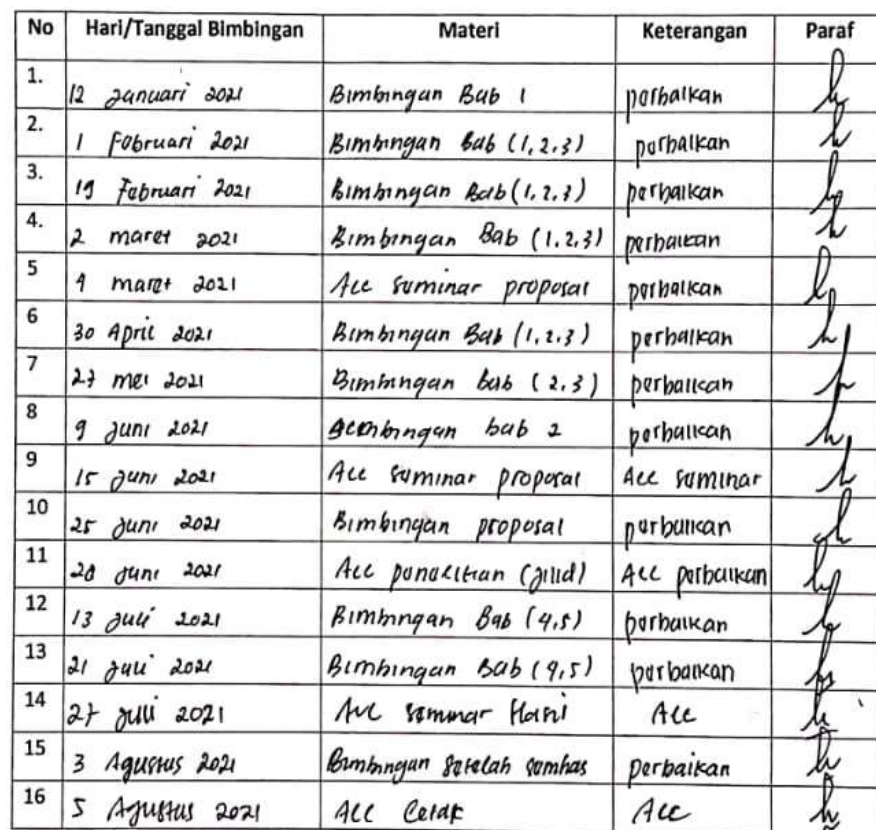 No Hari/Tanggal Bimbingan Materi Keterangan Paraf
1. 12 Januari 2021 Bimbingan Bab 1 perbaikan
2. 1 Februari 2021 Bimbingan Bab (1,2,3) perbaikan
3. 19 Februari 2021 Bimbingan Bab (1,2,3) perbaikan
4. 2 maret 2021 Bimbingan Bab (1,2,3) perbaikan
5 4 maret 2021 Acc seminar proposal perbaikan
6 30 April 2021 Bimbingan Bab (1,2,3) perbaikan
7 27 mei 2021 Bimbingan bab (2,3) perbaikan
8 9 Juni 2021 Bimbingan bab 2 perbaikan
9 15 Juni 2021 Acc seminar proposal Acc seminar
10 25 Juni 2021 Bimbingan proposal perbaikan
11 Juni 2021 Acc penelitian (jilid) Acc perbaikan
12 13 Juli 2021 Bimbingan Bab (4,5) perbaikan
13 21 Juli 2021 Bimbingan Bab (4,5) perbaikan
14 27 Juli 2021 Acc seminar Hasil Acc
15 3 Agustus 2021 Bimbingan setelah semhas perbaikan
16 5 Agustus 2021 Acc Cetak Acc